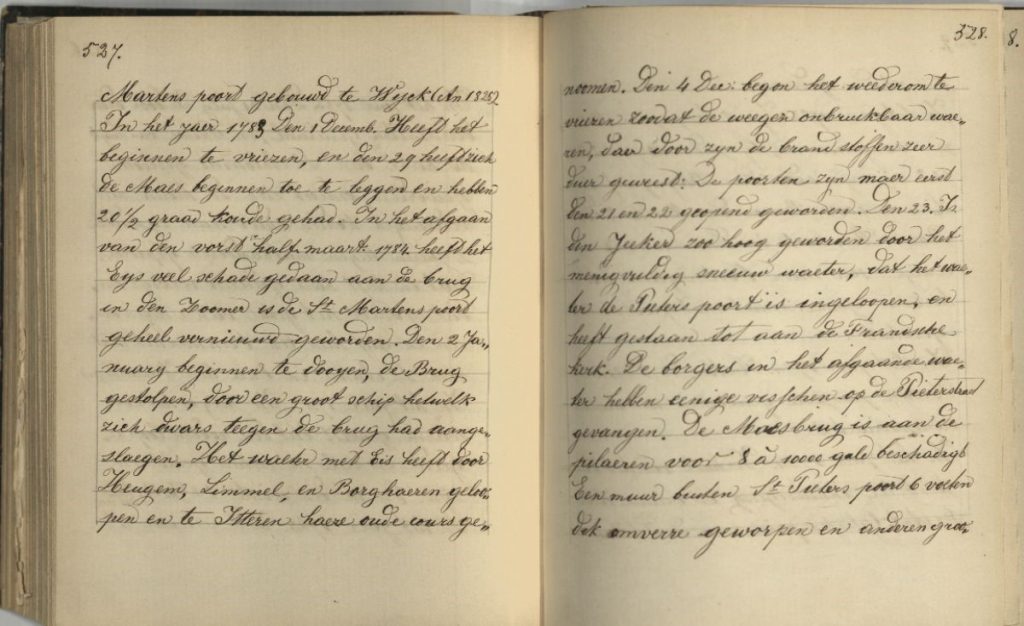 527.
Martens poort gebouwd te Wyck (An 1828)
In het yaer 1783 Den 1 Decemb. Heeft het
beginnen te vriezen, en den 29 heeft zich
de Maes beginnen toe te leggen en hebben
20 1/2 graad koude gehad. In het afgaan
van den vorst half maart 1784 heeft het
Eys veel schade gedaan aan de brug
in den Zoomer is de St Martens poort
geheel vernieuwd geworden. Den 2 Ja„
nuary beginnen te dooyen, de Brug
gestolpen, door een groot schip hetwelk
zich dwars teegen de brug had aange„
slaegen. Het waeter met Eis heeft door
Heugem, Limmel, en Borghaeren geloo„
pen en te Itteren haere oude cours ge„
528.
noomen. Den 4 Dec: begon het weederom te
vriezen zoodat de weegen onbruckbaar wae„
ren, daer door zyn de brandstoffen zeer
duer geweest: De poorten zyn maer eerst
den 21 en 22 geopend geworden. Den 23. Is
den Jeeker zoo hoog geworden door het
menigvuldig sneeuw waeter, dat het wae„
ter de Pieters poort is ingeloopen, en
heeft gestaen tot aan de Fransche
kerk. De borgers in het afgaande wae„
ter hebben eenige visschen op de Pieterstraat
gevangen. De Maesbrug is aan de
pilaeren voor 8 à 10000 guld beschadigd
Een muur buiten St Pieters poort 6 voeten
dik omverre geworpen en anderen groo„
8.